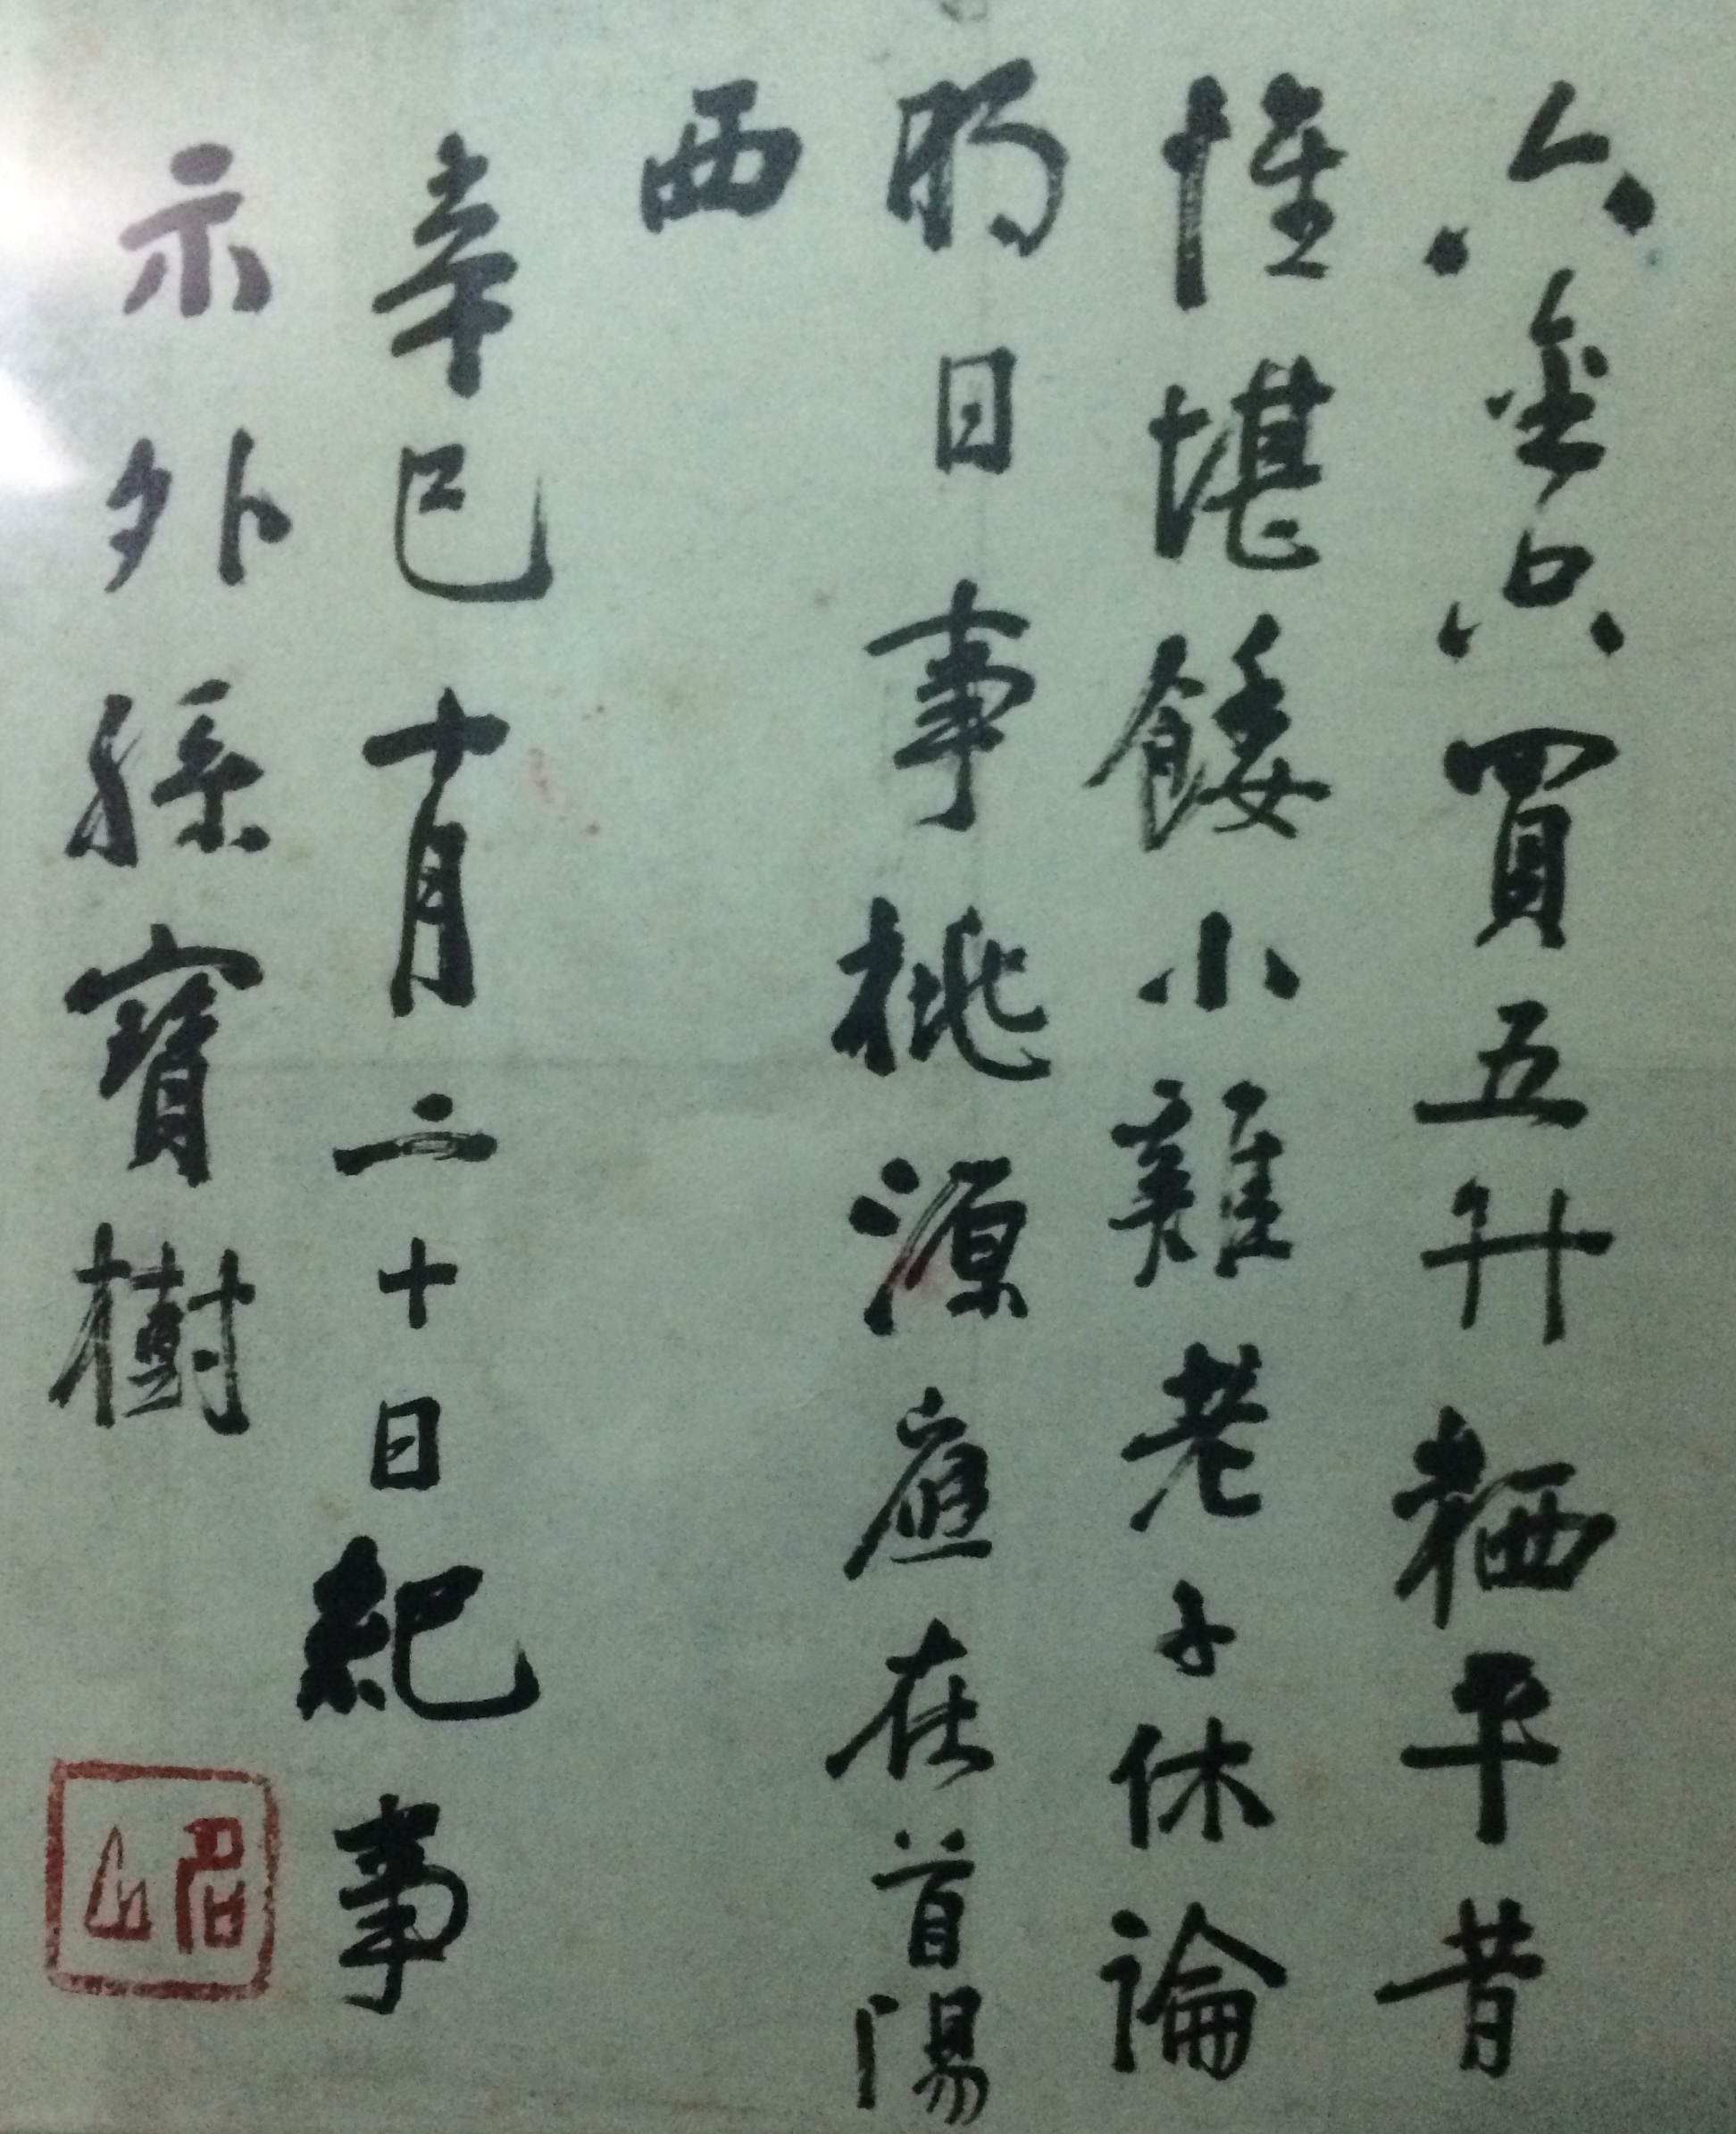 六金只買五升粞平昔
惟堪餧小雞老子休論
明日事桃源應在首陽
西
辛巳十月二十日紀事
示外孫寶樹